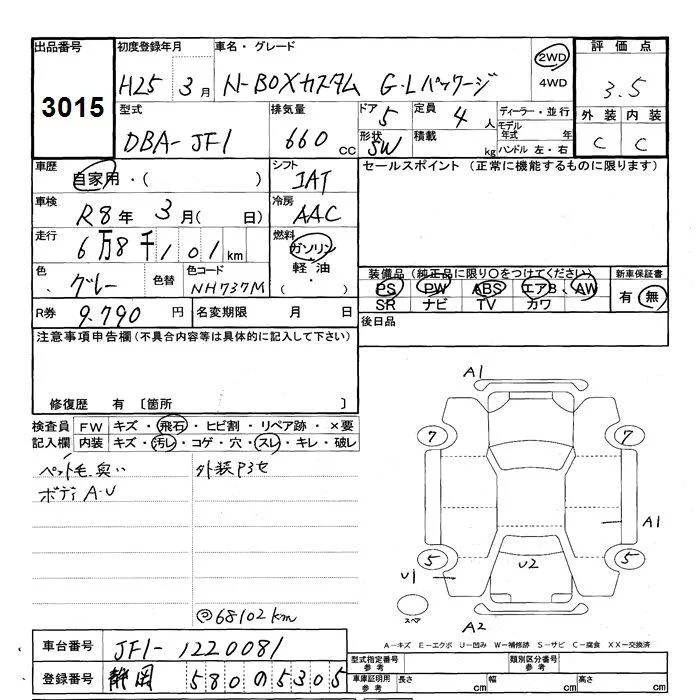 出品番号 初度登録年月 車名・グレード 評価点
3015 H25 3月 N-BOXカスタム G・Lパッケージ 2WD 4WD 3.5
外装 内装
C C
型式 排気量 ドア 定員 ディーラー・並行
DBA-JF1 660 CC 5 4人 モデル年式 年
形状 SW 積載 kg ハンドル 左・右
車歴 シフト セールスポイント (正常に機能するものに限ります)
自家用・( ) IAT
車検 冷房
R8年 3月( 日) AAC
走行 燃料
6万8千101km ガソリン
軽油
( ・ )
色 色替 色コード
グレー NH737M
装備品(純正品に限り○をつけてください) 新車保証書
PS PW ABS エアB、AW 有 無
SR ナビ TV カワ
R券 9.790円 名変期限 月 日 後日品
注意事項申告欄(不具合内容等は具体的に記入して下さい)
修復歴 有 〔箇所 〕
検査員 FW キズ・飛石・ヒビ割・リペア跡・×要
記入欄 内装 キズ・汚レ・コゲ・穴・スレ・キレ・破レ
ペット毛、臭い 外装Pヨセ
ボデ A・U
A1
7 7
A1
5 5
U1 U2
スペア
A2
68102km
A-キズ E-エクボ U-凹み W-補修跡 S-サビ C-腐食 XX-交換済
車台番号 JF1-1220081
型式指定番号 参考 類別区分番号 参考
登録番号 静岡 580の5305
車庫証明用 参考 長さ cm 幅 cm 高さ cm